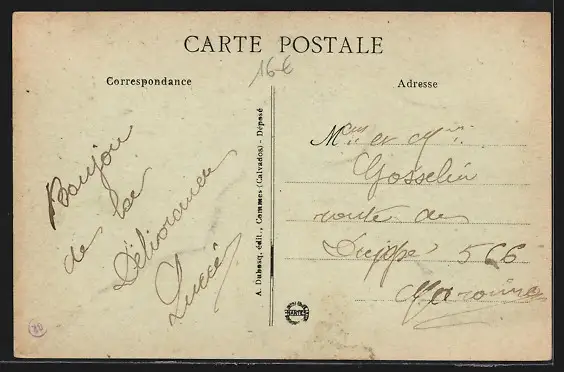 CARTE POSTALE
16 €
Correspondance
Adresse
Bonjour
de la
Délivrande
Lucie
A. Dubosq, édit., Commes (Calvados) - Déposé
et
Gosselin
route de
Dieppe 566
MARTEL